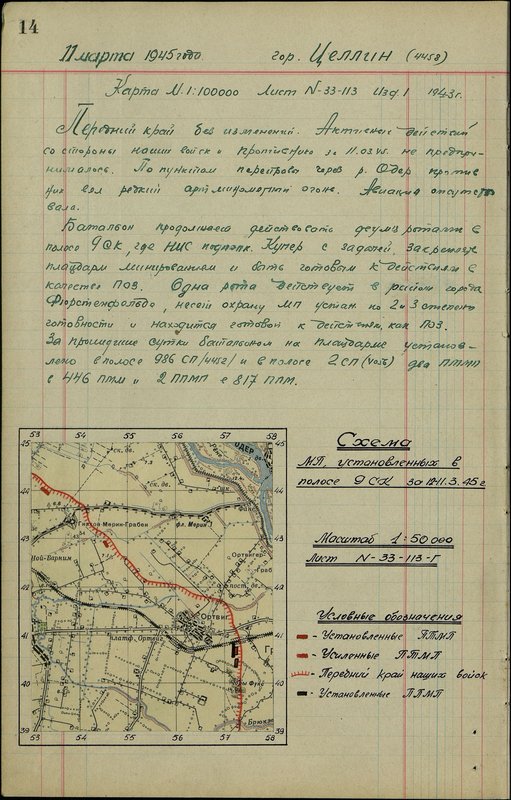 14
11 марта 1945 года гор. Целлин (4458)
Карта М. 1:100000 Лист N-33-113 Изд. 1943г.
Передний край без изменений. Активных действий
со стороны наших войск и противника за 11.03.45. не предпри-
нималось. По пунктам переправы через р. Одер против-
ник вел редкий арт. минометный огонь. Авиация отсутство-
вала.
Батальон продолжает действовать двумя ротами в
полосе 9 СК, где НИС подполк. Купер с задачей, закрепить
плацдарм минированием и быть готовым к действиям в
качестве ПОЗ. Одна рота действует в районе города
Фюрстенфельде, несет охрану МП устан. по 2 и 3 степени
готовности и находится готовой к действиям, как ПОЗ.
За прошедшие сутки батальоном на плацдарме установ-
лено в полосе 986 СП /4452/ и в полосе 2 СП два ПТМП
с 446 ПТМ и 2 ППМП с 817 ППМ.
Схема
МП, установленных в
полосе 9 СК за 11.3.45 г
Масштаб 1:50 000
Лист N-33-113-Г
Условные обозначения
- Установленные ПТМП
- Усиленные ПТМП
- Передний край наших войск
- Установленные ППМП
53 54 55 56 57 58
45 45
44 44
43 43
42 42
41 41
40 40
39 39
53 54 55 56 57 58
ОДЕР
Ной-Барним
Ортвигер-
Граб
Ортвиг
платф. Ортвиг